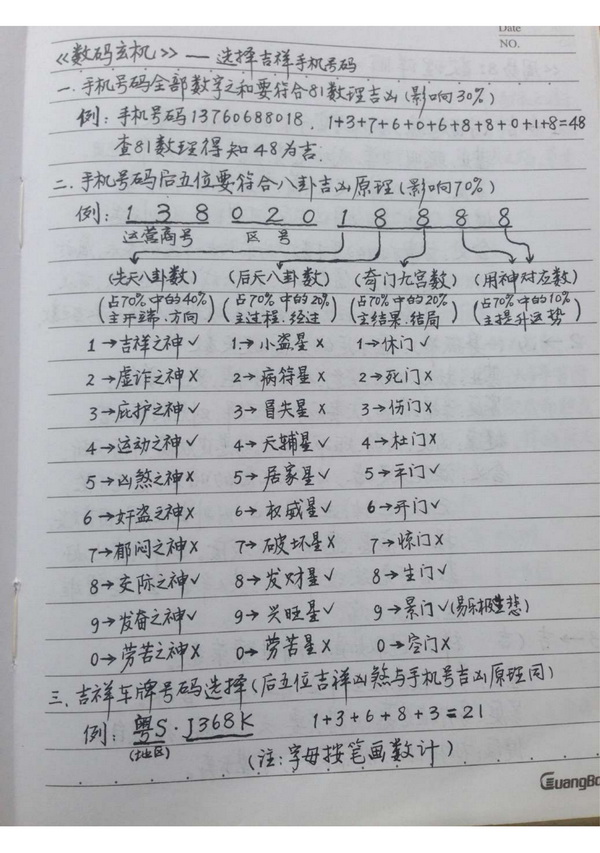 Date
NO.
《数码玄机》——选择吉祥手机号码
一.手机号码全部数字之和要符合81数理吉凶(影响30%)
例:手机号码13760688018. 1+3+7+6+0+6+8+8+0+1+8=48
查81数理得知48为吉.
二.手机号码后五位要符合八卦吉凶原理(影响70%)
例: 1 3 8 0 2 0 1 8 8 8 8
运营商号 区号
(先天八卦数) (后天八卦数) (奇门九宫数) (用神对应数)
(占70%中的40% (占70%中的20% (占70%中的20% (占70%中的10%
主开端.方向) 主过程.经过) 主结果.结局) 主提升运势)
1→吉祥之神√ 1→小盗星× 1→休门√
2→虚诈之神× 2→病符星× 2→死门×
3→庇护之神√ 3→冒失星× 3→伤门×
4→运动之神√ 4→天辅星√ 4→杜门×
5→凶煞之神× 5→居家星√ 5→平门√
6→奸盗之神× 6→权威星√ 6→开门√
7→郁闷之神× 7→破坏星× 7→惊门×
8→交际之神√ 8→发财星√ 8→生门√
9→发奋之神√ 9→兴旺星√ 9→景门√(易乐极生悲)
0→劳苦之神× 0→劳苦星× 0→空门×
三.吉祥车牌号码选择(后五位吉祥凶煞与手机号吉凶原理同)
例: 粤S·J368K 1+3+6+8+3=21
(地区) (注:字母按笔画数计)
GuangBo